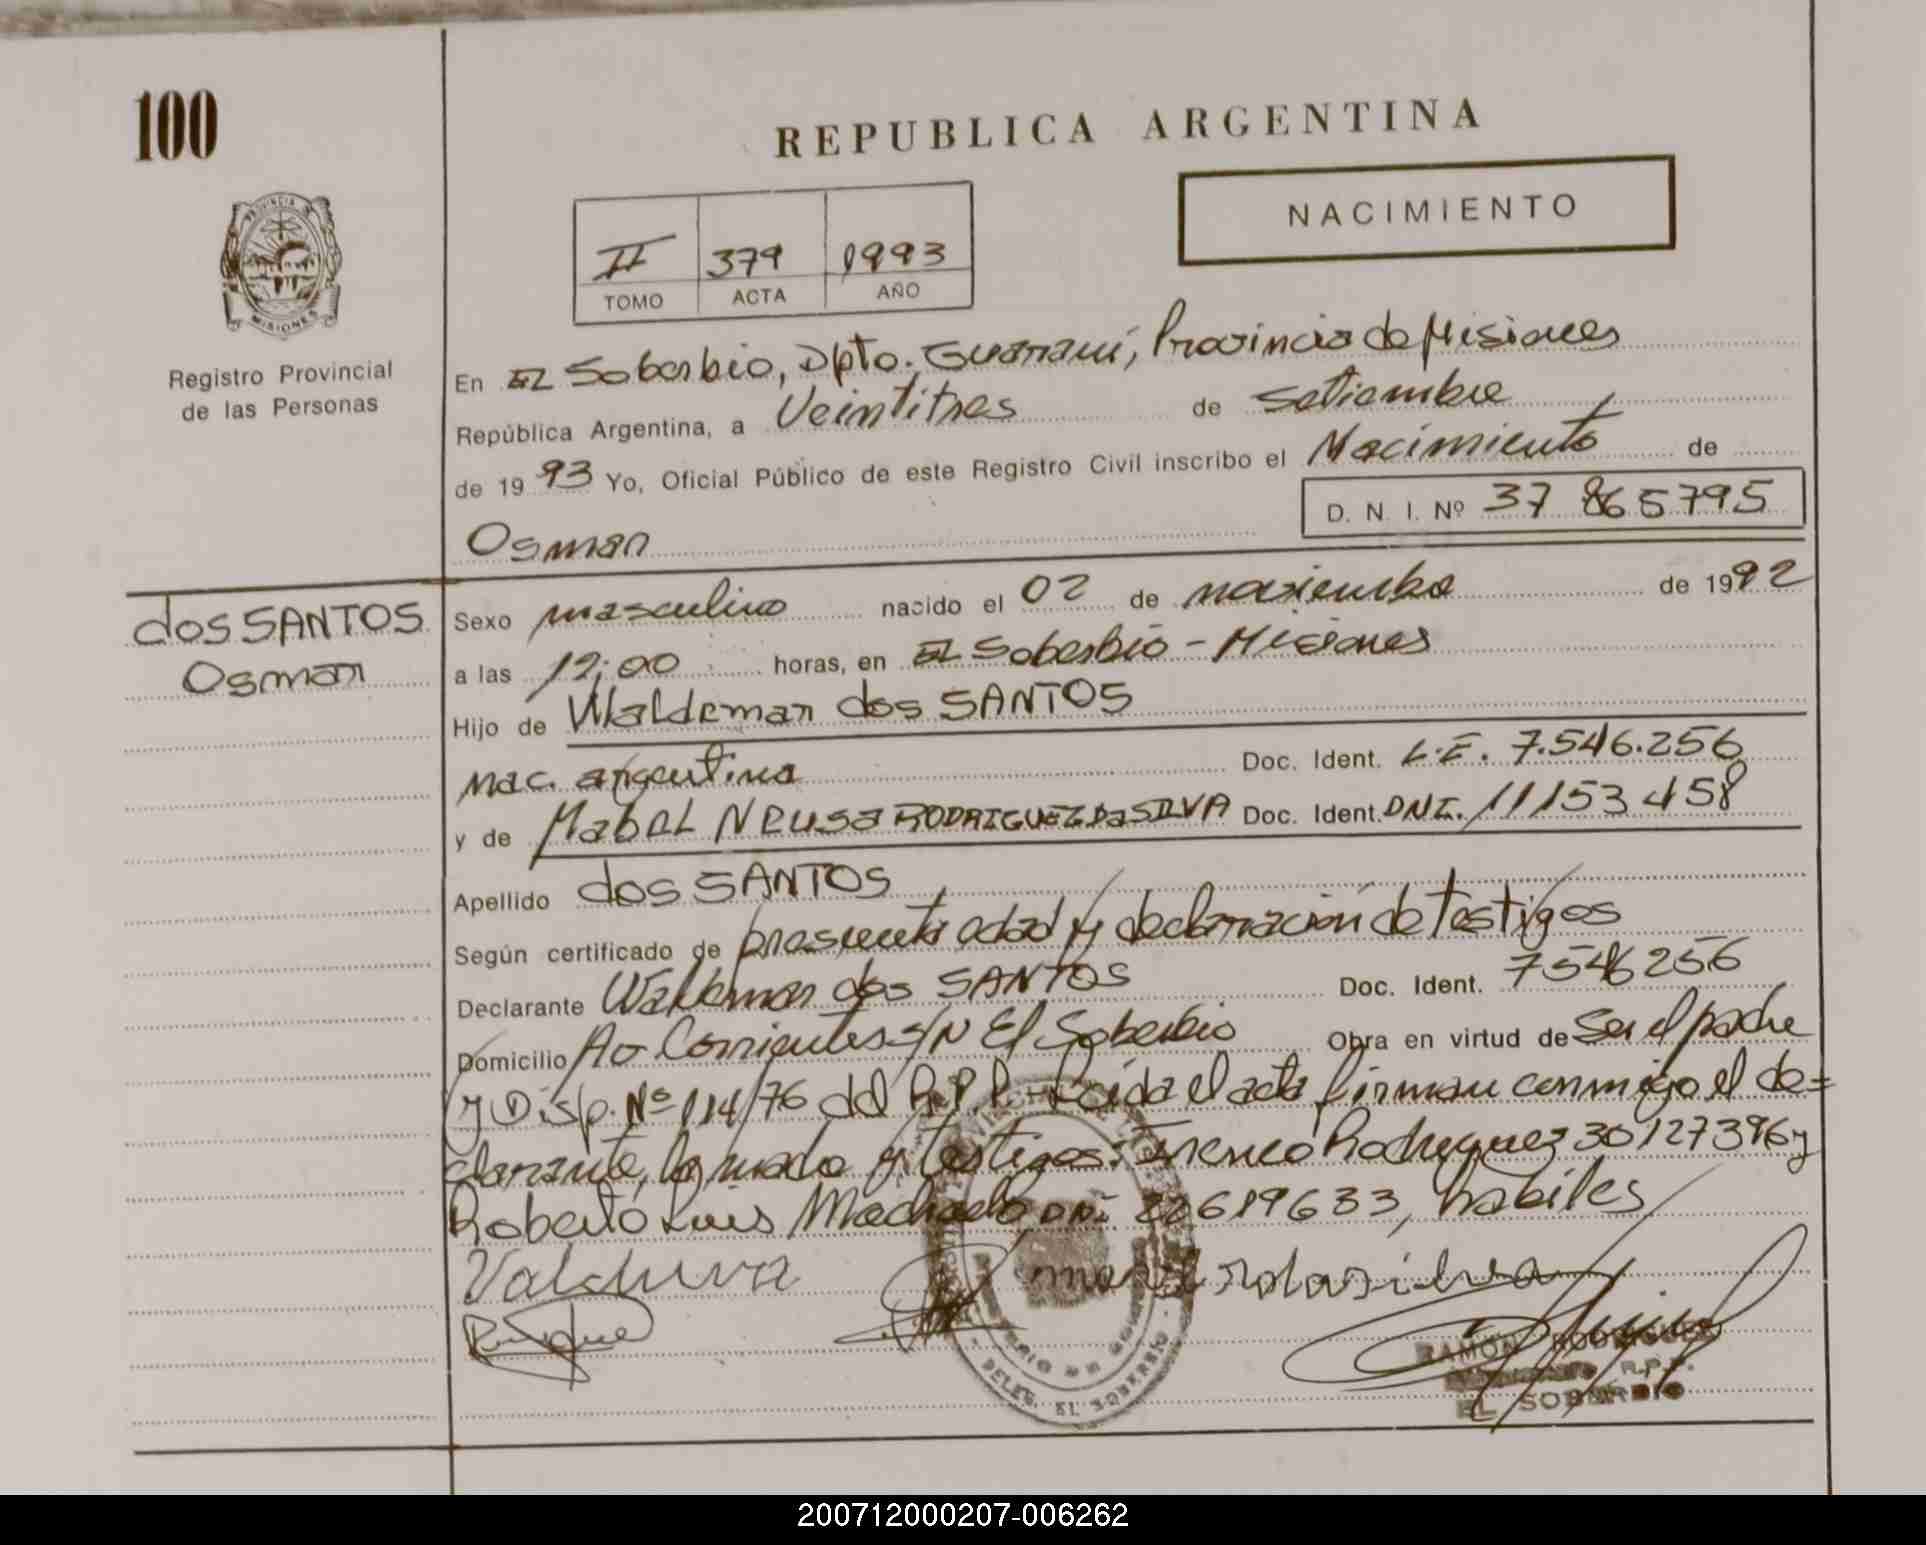 100
REPUBLICA ARGENTINA
NACIMIENTO
II 379 1993
TOMO ACTA AÑO
PROVINCIA DE
MISIONES
Registro Provincial
de las Personas
En EL Soberbio, Dpto. Guaraní, Provincia de Misiones
República Argentina, a Veintitres de Setiembre
de 1993 Yo, Oficial Público de este Registro Civil inscribo el Nacimiento de
D. N. I. Nº 37 865795
Osman
dos SANTOS
Osman
Sexo masculino nacido el 02 de noviembre de 1992
a las 12:00 horas, en EL Soberbio - Misiones
Hijo de Waldemar dos SANTOS
nac. argentina Doc. Ident. L.E. 7.546.256
y de Mabel Neusa RODRIGUEZ Da SILVA Doc. Ident. DNI. 11153458
Apellido dos SANTOS
Según certificado de presunta edad y declaración de testigos
Declarante Waldemar dos SANTOS Doc. Ident. 7546256
Domicilio Av Corrientes S/N El Soberbio Obra en virtud de Ser el padre
y Disp. Nº 114/76 del R.P.P. Leída el acta firman conmigo el de=
clarante, la madre y testigos: Ireneo Rodriguez 30127396 y
Roberto Luis Machado DNI 22619633, habiles
DELEG. EL SOBERBIO
RAMON RODRIGUEZ
R.P.P.
EL SOBERBIO
200712000207-006262